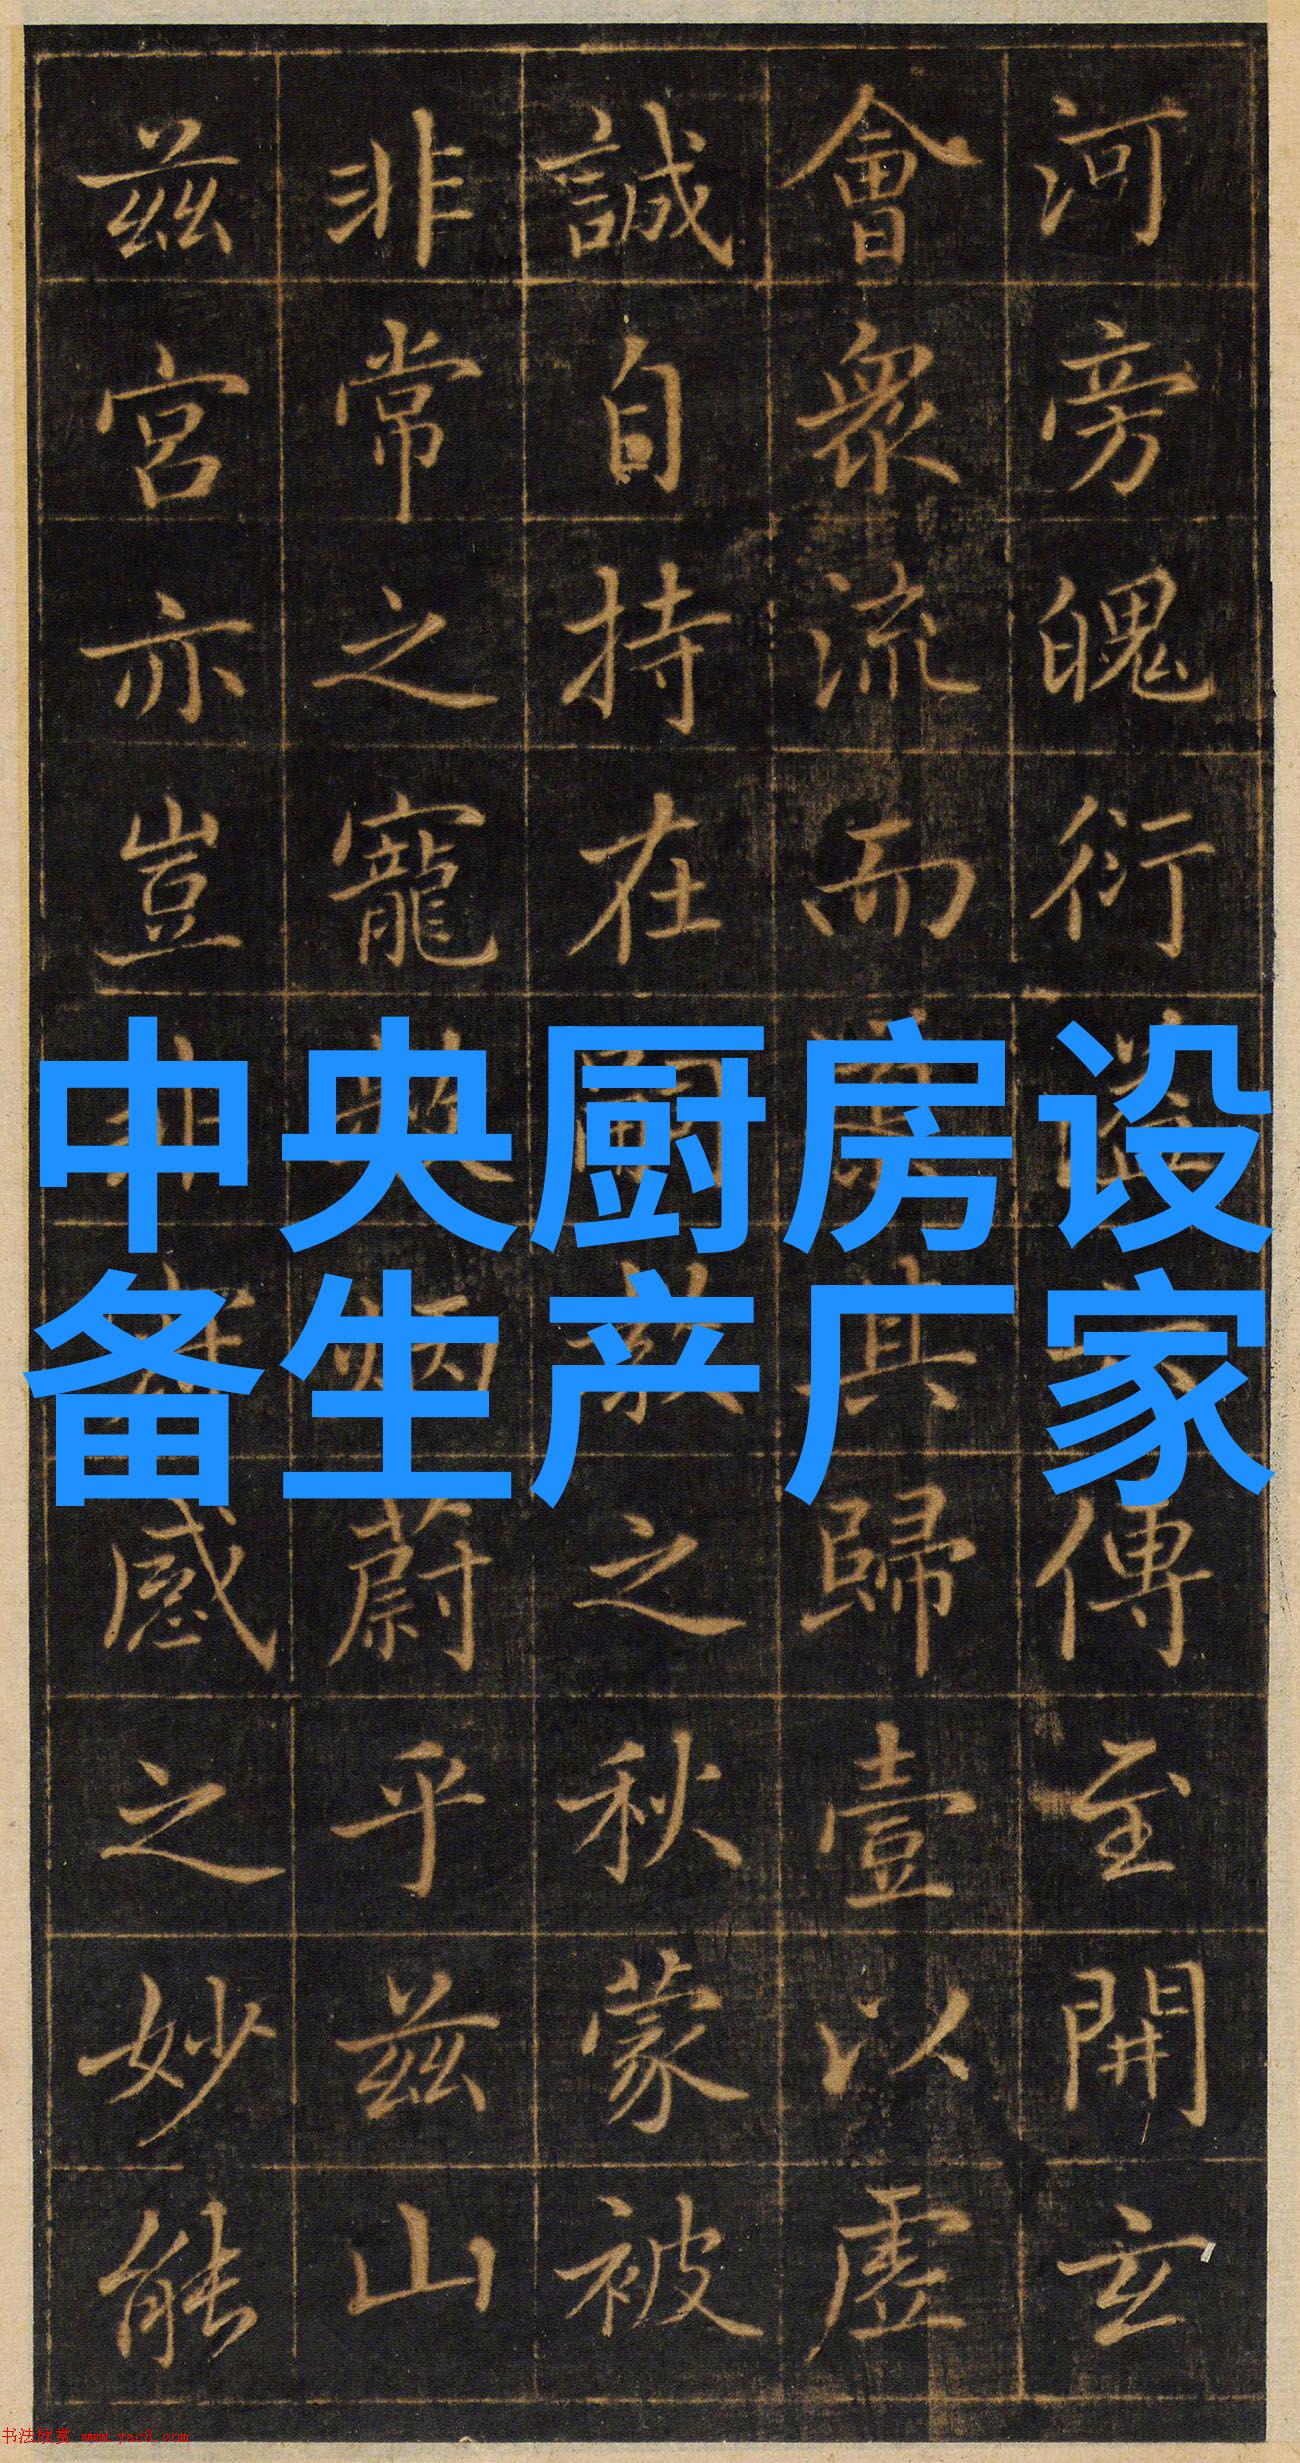 河旁魄衍傳至開玄
會衆流而其歸壹以虛
誠自持在之秋蒙被
非常之寵蔚乎茲山
茲宮亦豈非感之妙能
中央厨房设
备生产厂家
书法欣赏 www.yac8.com